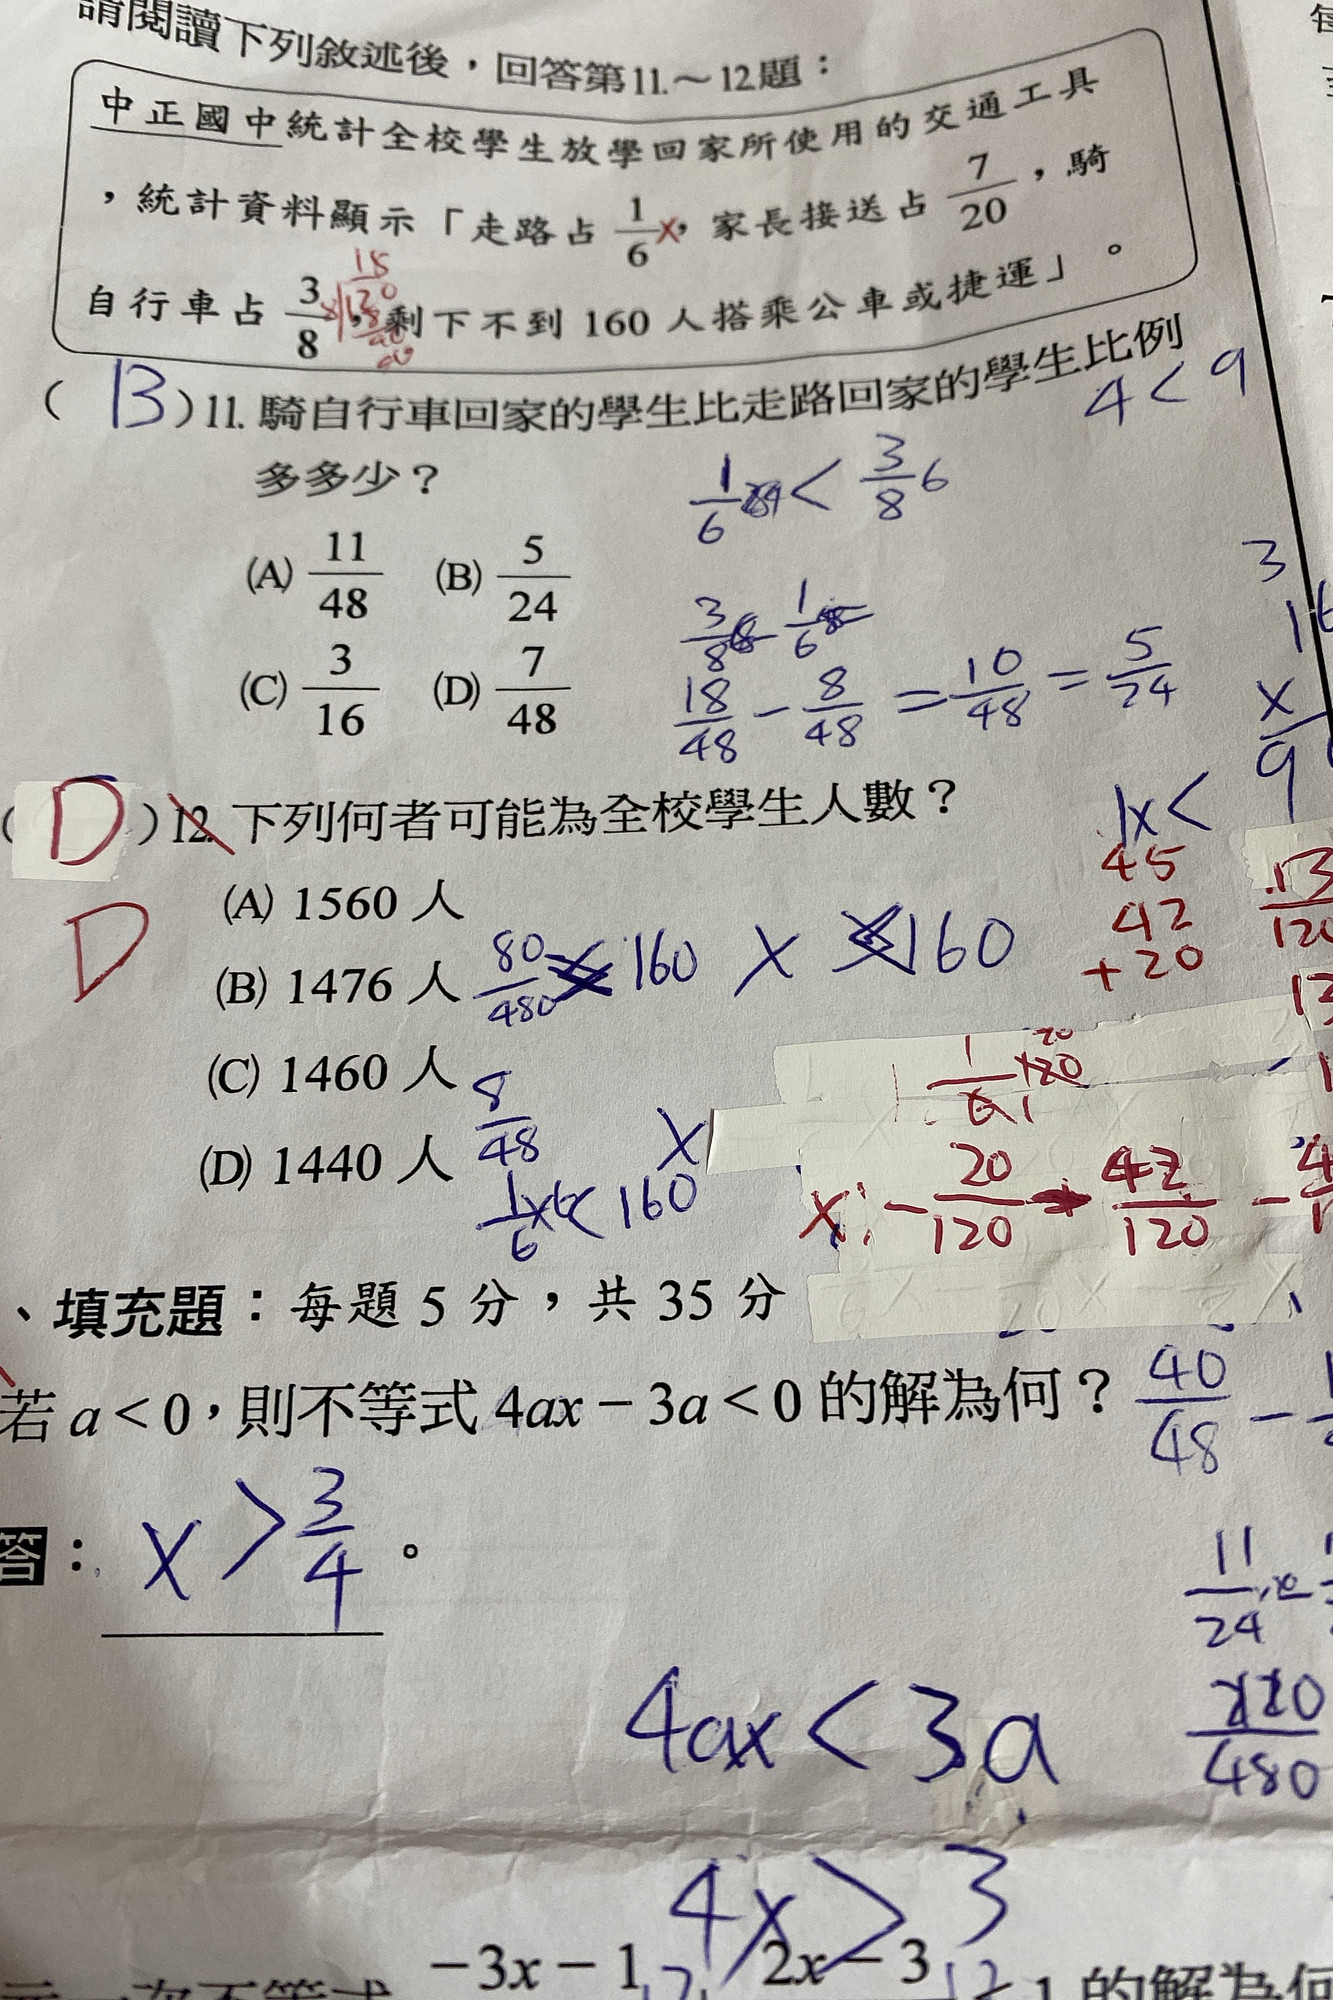 請閱讀下列敘述後，回答第11.～12.題：
中正國中統計全校學生放學回家所使用的交通工具
，統計資料顯示「走路占 1/6 x，家長接送占 7/20，騎
自行車占 3/8，剩下不到 160 人搭乘公車或捷運」。
( B )11. 騎自行車回家的學生比走路回家的學生比例
4 < 9
多多少？
1/6 < 3/8 6
(A) 11/48 (B) 5/24
3/8 - 1/6
(C) 3/16 (D) 7/48
18/48 - 8/48 = 10/48 = 5/24
( D )12. 下列何者可能為全校學生人數？
1x <
(A) 1560 人
45
42
+20
D
(B) 1476 人
80/480 160 x 160
(C) 1460 人
8/48 x
(D) 1440 人
1/6 x < 160
20/120 42/120
、填充題：每題 5 分，共 35 分
若 a < 0，則不等式 4ax − 3a < 0 的解為何？
40/48 -
答： x > 3/4 。
11/24
480
4ax < 3a
4x > 3
−3x − 1 2x − 3 1 的解為何